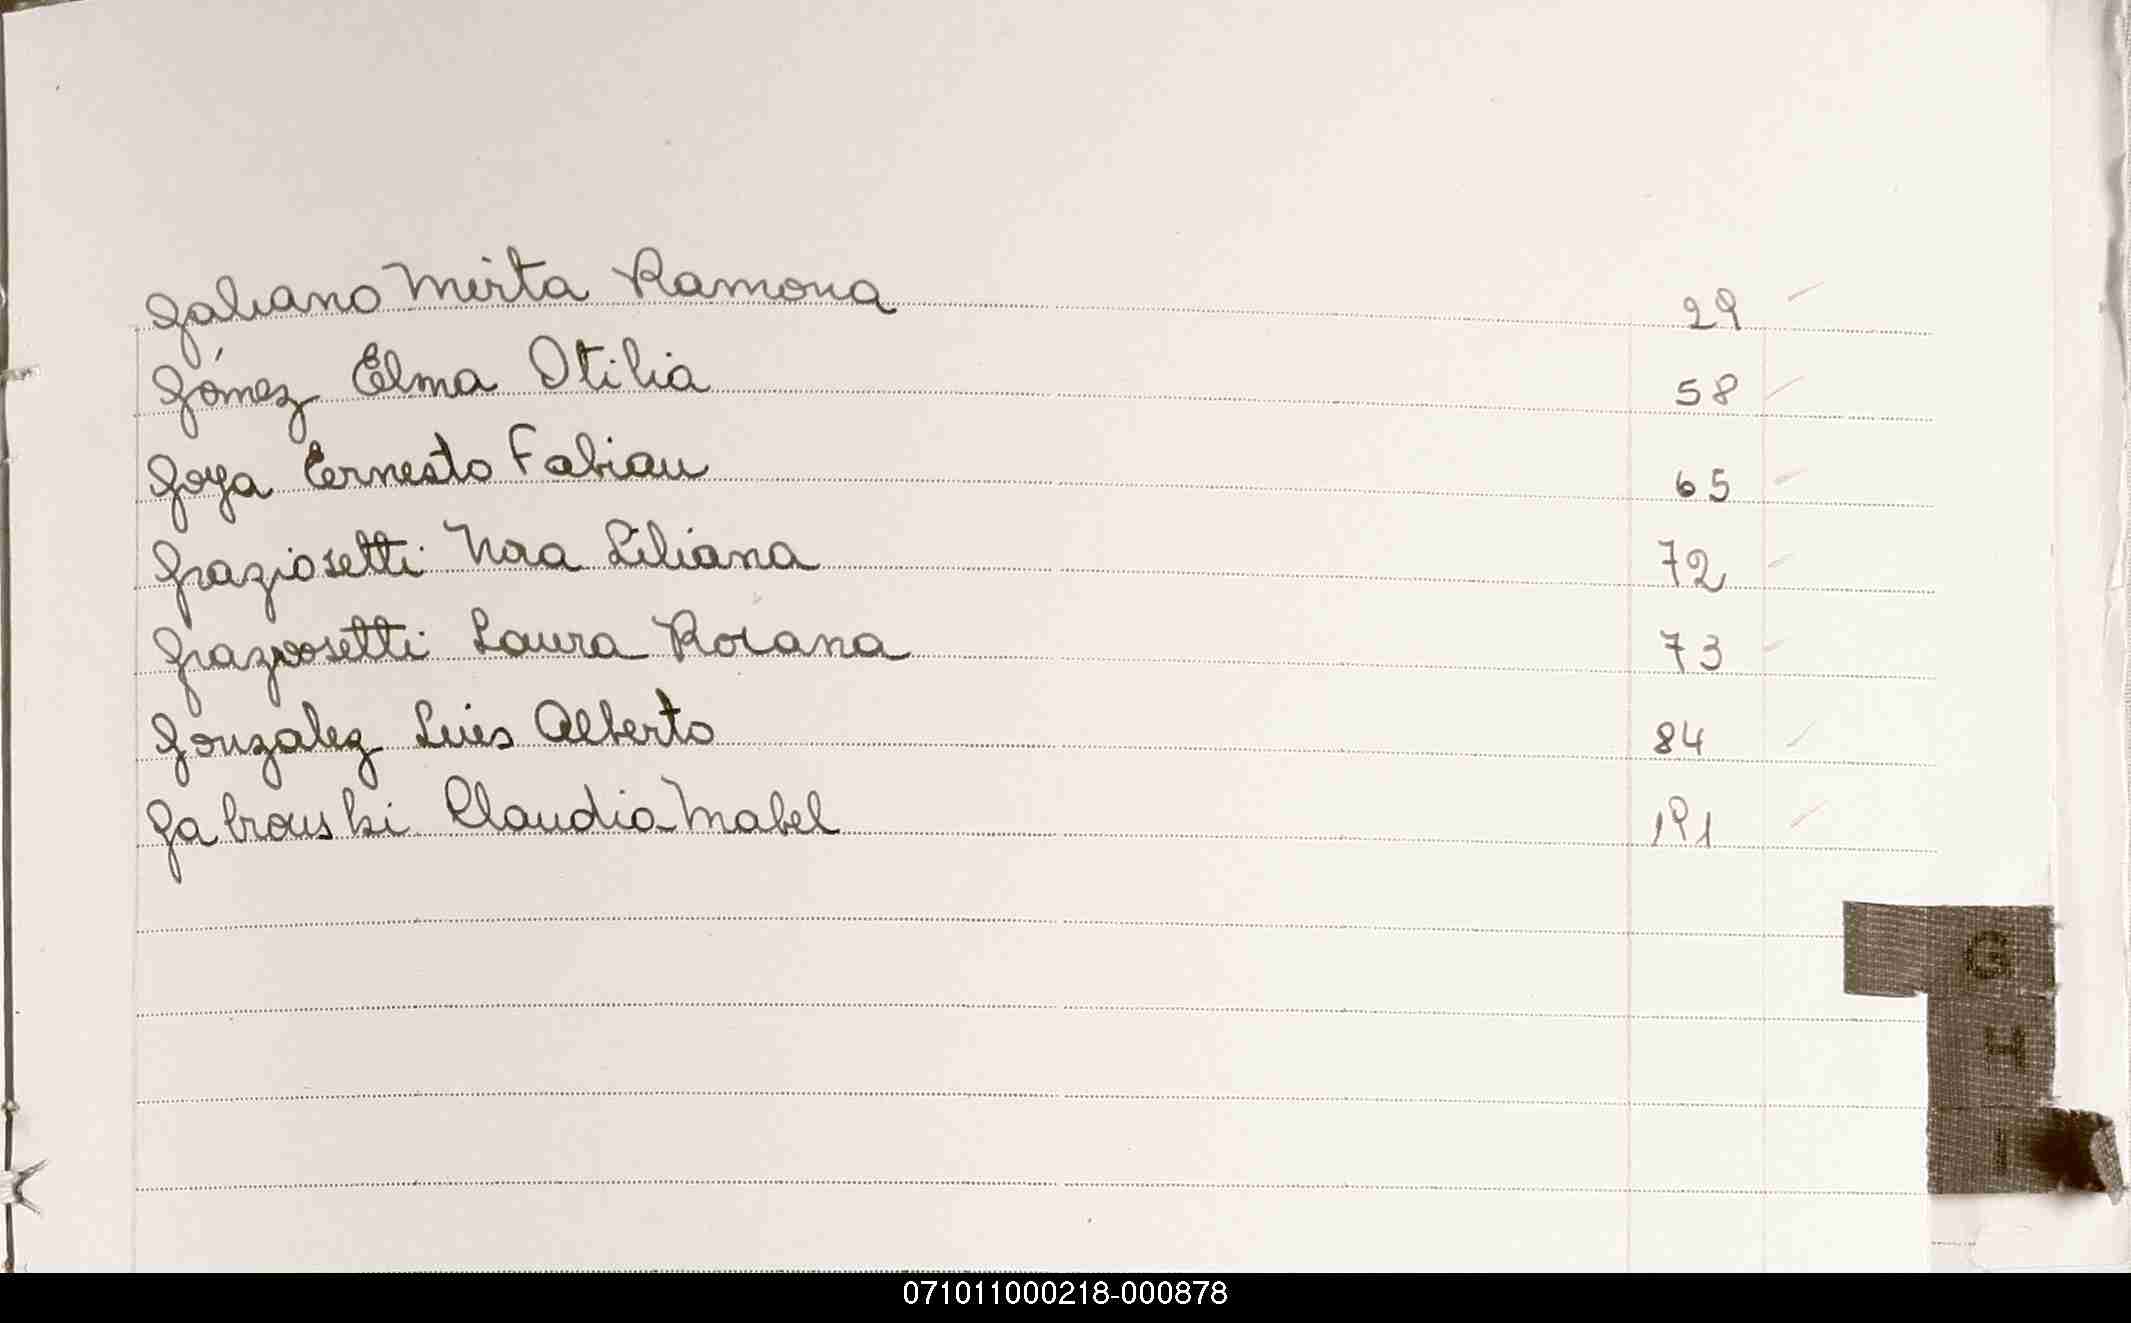 Galiano Mirta Ramona 29
Gómez Elma Otilia 58
Goya Ernesto Fabian 65
Graziosetti Liliana 72
Graziosetti Laura 73
Gonzalez Luis Alberto 84
Gabrouski Claudia Mabel 191
G
H
I
071011000218-000878